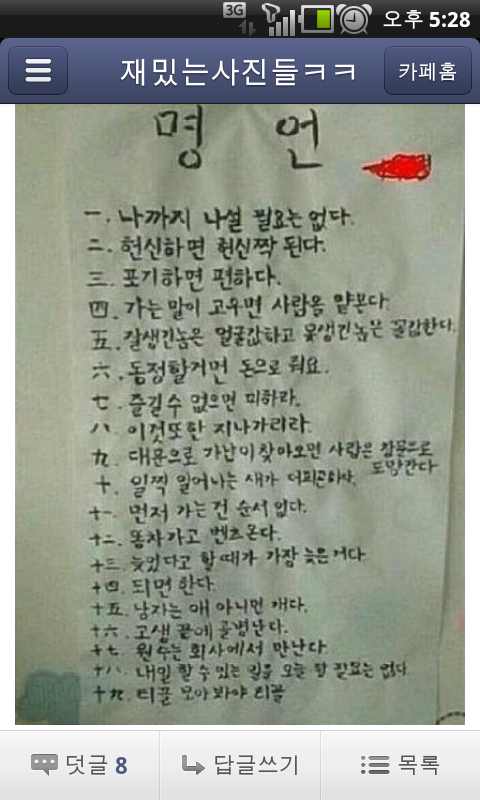 3G 오후 5:28
재밌는사진들ㅋㅋ 카페홈
명 언
一. 나까지 나설 필요는 없다.
二. 헌신하면 헌신짝 된다.
三. 포기하면 편하다.
四. 가는 말이 고우면 사람을 얕본다.
五. 잘생긴놈은 얼굴값하고 못생긴놈은 꼴값한다.
六. 동정할거면 돈으로 줘요.
七. 즐길수 없으면 피하라.
八. 이것또한 지나가리라.
九. 대문으로 가난이 찾아오면 사람은 창문으로
도망간다
十. 일찍 일어나는 새가 더피곤하다.
十一. 먼저 가는건 순서 없다.
十二. 똥차가고 벤츠온다.
十三. 늦었다고 할때가 가장 늦은거다
十四. 되면 한다.
十五. 남자는 애 아니면 개다.
十六. 고생 끝에 골병난다.
十七. 원수는 회사에서 만난다.
十八. 내일 할수 있는 일을 오늘 할 필요는 없다.
十九. 티끌 모아봐야 티끌
덧글 8 답글쓰기 목록